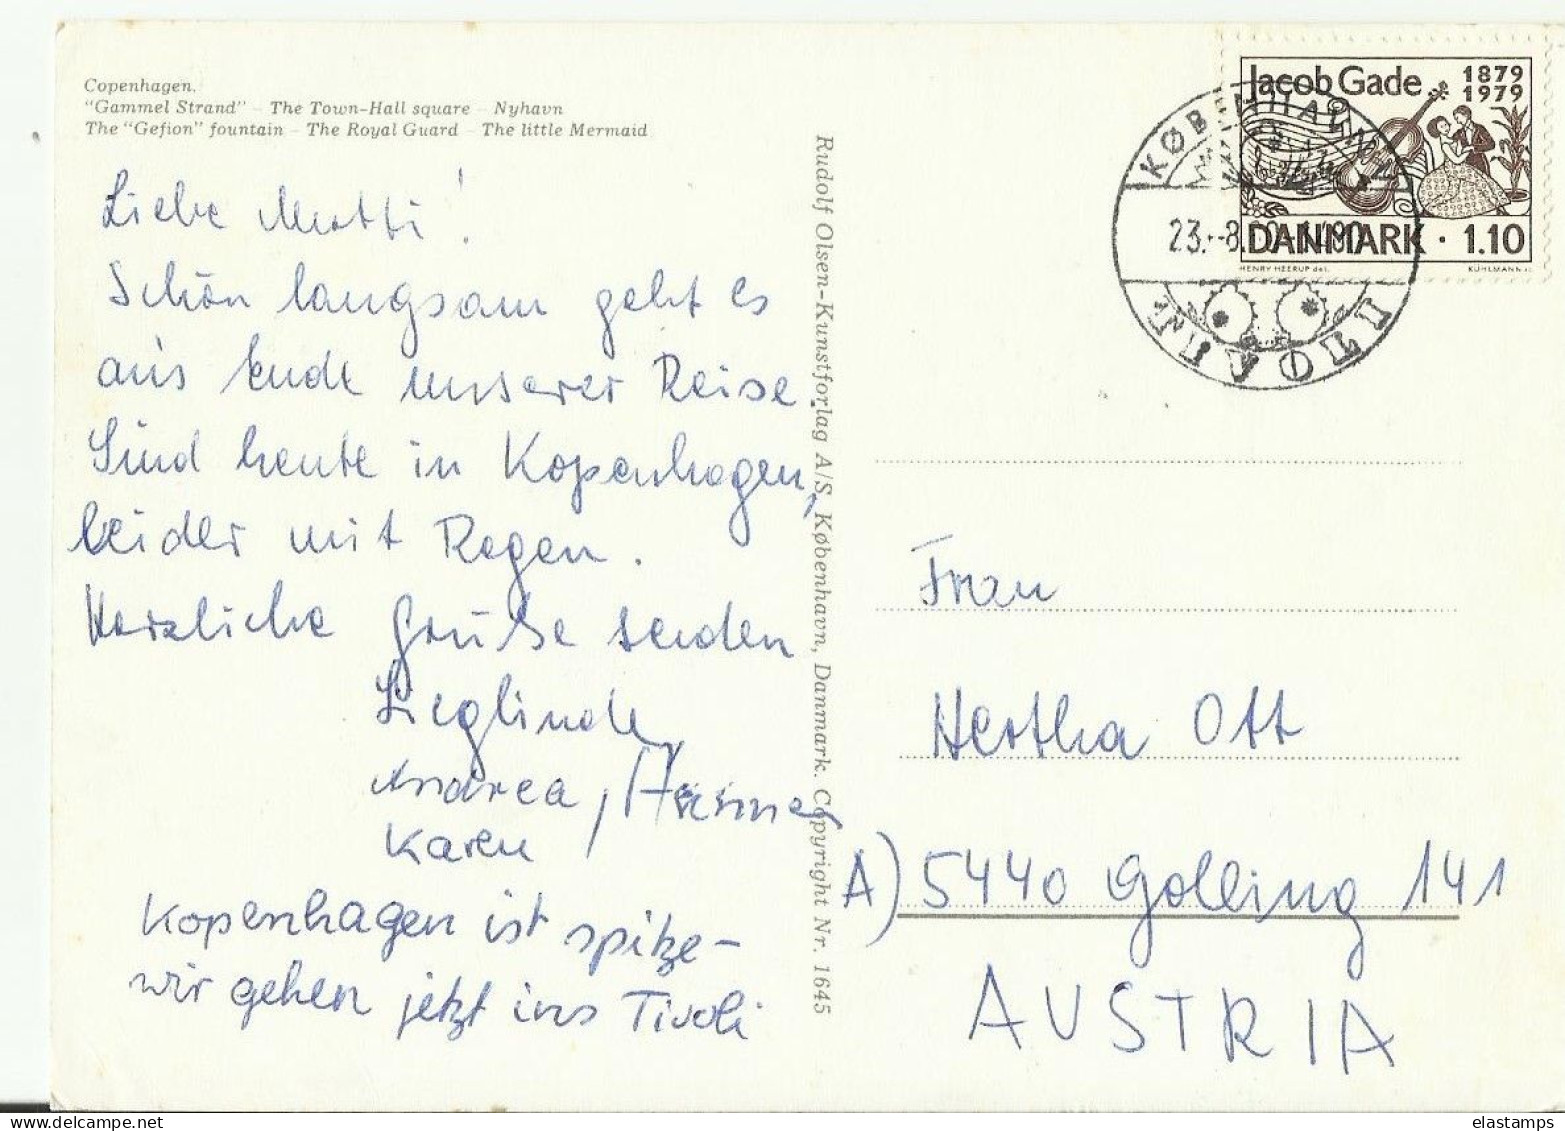 Copenhagen.
"Gammel Strand" – The Town-Hall square – Nyhavn
The "Gefion" fountain – The Royal Guard – The little Mermaid
Liebe Mutti!
Schön langsam geht es
ans Ende unserer Reise.
Sind heute in Kopenhagen,
leider mit Regen.
Herzliche Grüße senden
Sieglinde,
Andrea,
Karen
Kopenhagen ist spitze –
wir gehen jetzt ins Tivoli
Rudolf Olsen-Kunstforlag A/S, København, Danmark. Copyright Nr. 1645
Jacob Gade 1879
1979
DANMARK · 1.10
HENRY HEERUP del.
KØBENHAVN
23.-8.
Frau
Hertha Ott
A) 5440 Golling 141
AUSTRIA
www.delcampe.net
elastamps